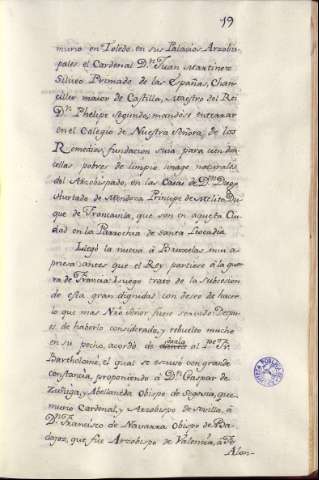 19
murio en Toledo en sus Palacios Arzobis-
pales el Cardenal Dn. Juan Martinez
Siliceo Primado de las Españas, Chan-
ciller maior de Castilla, Maestro del Rei
Dn. Phelipe segundo; mandose enterrar
en el Colegio de Nuestra Señora, de los
Remedios, fundacion suia para cien don-
cellas pobres de limpio linage naturales
del Arzobispado, en las Casas de Dn. Diego
Hurtado de Mendoza Principe de Melito Du-
que de Francavila, que son en aquella Ciu-
dad en la Parrochia de Santa Leocadia.
Llegó la nueva à Bruxelas mui a
priesa, antes que el Rey partiese à la gue-
rra de Francia: Luego trato de la subcesion
de esta gran dignidad con deseo de hacer
lo que mas Nro Señor fuese servido. Despu-
es de haberlo considerado, y rebuelto mucho
en su pecho, acordó de darla al Pe. Fr.
Bartholome, el qual se escusó con grande
constancia, proponiendo à Dn. Gaspar de
Zuñiga, y Abellaneda Obispo de Segovia, que
murio Cardenal, y Arzobispo de Sevilla, à
Dn. Francisco de Navarra Obispo de Ba-
dajoz, que fue Arzobispo de Valencia, à Fr.
Alon-